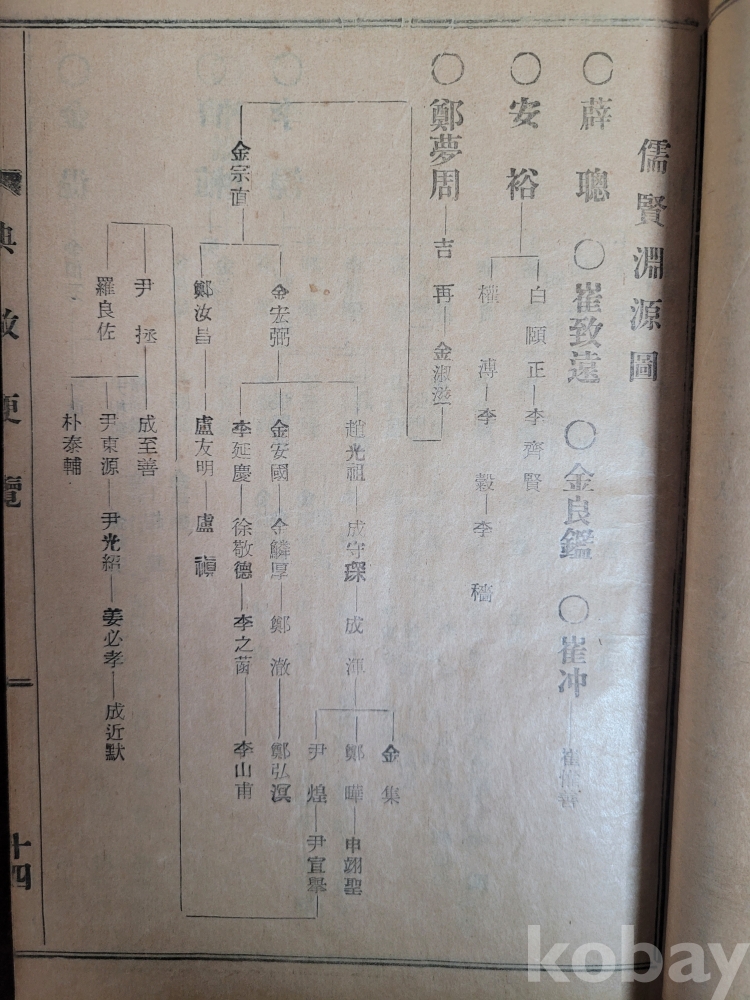 儒賢淵源圖
○薛聰 ○崔致遠 ○金良鑑 ○崔冲
○安裕
白頤正 李齊賢
權溥 李穀 李穡
○鄭夢周 吉再 金淑滋
金宗直
金宏弼
鄭汝昌
趙光祖 成守琛 成渾
金集
鄭曄 申翊聖
尹煌 尹宣擧
金安國 金麟厚 鄭澈 鄭弘溟
李延慶 徐敬德 李之菡 李山甫
盧友明 盧禛
尹拯
羅良佐
成至善
尹東源 尹光紹 姜必孝 成近默
朴泰輔
典故便覽
十四
kobay